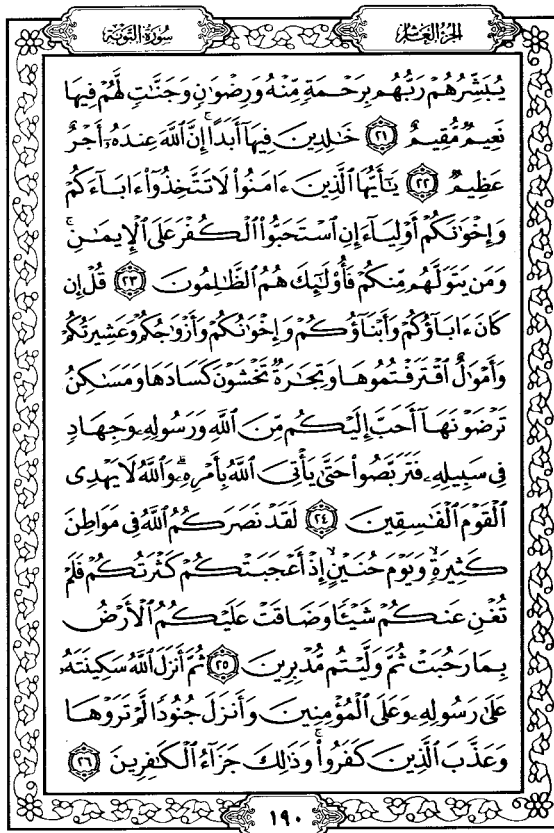 سُورَةُ التَّوْبَةِ
الجُزْءُ العَاشِرُ
يُبَشِّرُهُمْ رَبُّهُم بِرَحْمَةٍ مِّنْهُ وَرِضْوَٰنٍ وَجَنَّٰتٍ لَّهُمْ فِيهَا
نَعِيمٌ مُّقِيمٌ ٢١ خَٰلِدِينَ فِيهَآ أَبَدًا ۚ إِنَّ ٱللَّهَ عِندَهُۥٓ أَجْرٌ
عَظِيمٌ ٢٢ يَٰٓأَيُّهَا ٱلَّذِينَ ءَامَنُوا۟ لَا تَتَّخِذُوٓا۟ ءَابَآءَكُمْ
وَإِخْوَٰنَكُمْ أَوْلِيَآءَ إِنِ ٱسْتَحَبُّوا۟ ٱلْكُفْرَ عَلَى ٱلْإِيمَٰنِ ۚ
وَمَن يَتَوَلَّهُم مِّنكُمْ فَأُو۟لَٰٓئِكَ هُمُ ٱلظَّٰلِمُونَ ٢٣ قُلْ إِن
كَانَ ءَابَآؤُكُمْ وَأَبْنَآؤُكُمْ وَإِخْوَٰنُكُمْ وَأَزْوَٰجُكُمْ وَعَشِيرَتُكُمْ
وَأَمْوَٰلٌ ٱقْتَرَفْتُمُوهَا وَتِجَٰرَةٌ تَخْشَوْنَ كَسَادَهَا وَمَسَٰكِنُ
تَرْضَوْنَهَآ أَحَبَّ إِلَيْكُم مِّنَ ٱللَّهِ وَرَسُولِهِۦ وَجِهَادٍ
فِى سَبِيلِهِۦ فَتَرَبَّصُوا۟ حَتَّىٰ يَأْتِىَ ٱللَّهُ بِأَمْرِهِۦ ۗ وَٱللَّهُ لَا يَهْدِى
ٱلْقَوْمَ ٱلْفَٰسِقِينَ ٢٤ لَقَدْ نَصَرَكُمُ ٱللَّهُ فِى مَوَاطِنَ
كَثِيرَةٍ ۙ وَيَوْمَ حُنَيْنٍ ۙ إِذْ أَعْجَبَتْكُمْ كَثْرَتُكُمْ فَلَمْ
تُغْنِ عَنكُمْ شَيْـًٔا وَضَاقَتْ عَلَيْكُمُ ٱلْأَرْضُ
بِمَا رَحُبَتْ ثُمَّ وَلَّيْتُم مُّدْبِرِينَ ٢٥ ثُمَّ أَنزَلَ ٱللَّهُ سَكِينَتَهُۥ
عَلَىٰ رَسُولِهِۦ وَعَلَى ٱلْمُؤْمِنِينَ وَأَنزَلَ جُنُودًا لَّمْ تَرَوْهَا
وَعَذَّبَ ٱلَّذِينَ كَفَرُوا۟ ۚ وَذَٰلِكَ جَزَآءُ ٱلْكَٰفِرِينَ ٢٦
١٩٠